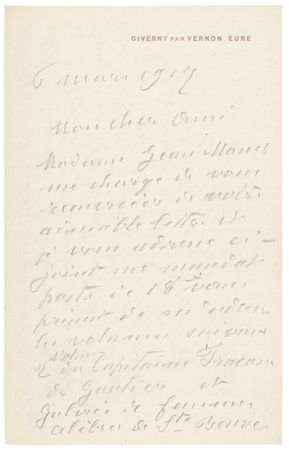 GIVERNY PAR VERNON. EURE
6 mars 1917
Mon cher Ami
Madame Jean Monet
me charge de vous
remercier de votre
aimable lettre et
je vous adresse ci-
joint un mandat
poste de 18 f vous
priant de m'adresser
les volumes suivants
2 vol du Capitaine Fracasse
de Gautier et
Galerie de femmes
célèbres de Ste Beuve